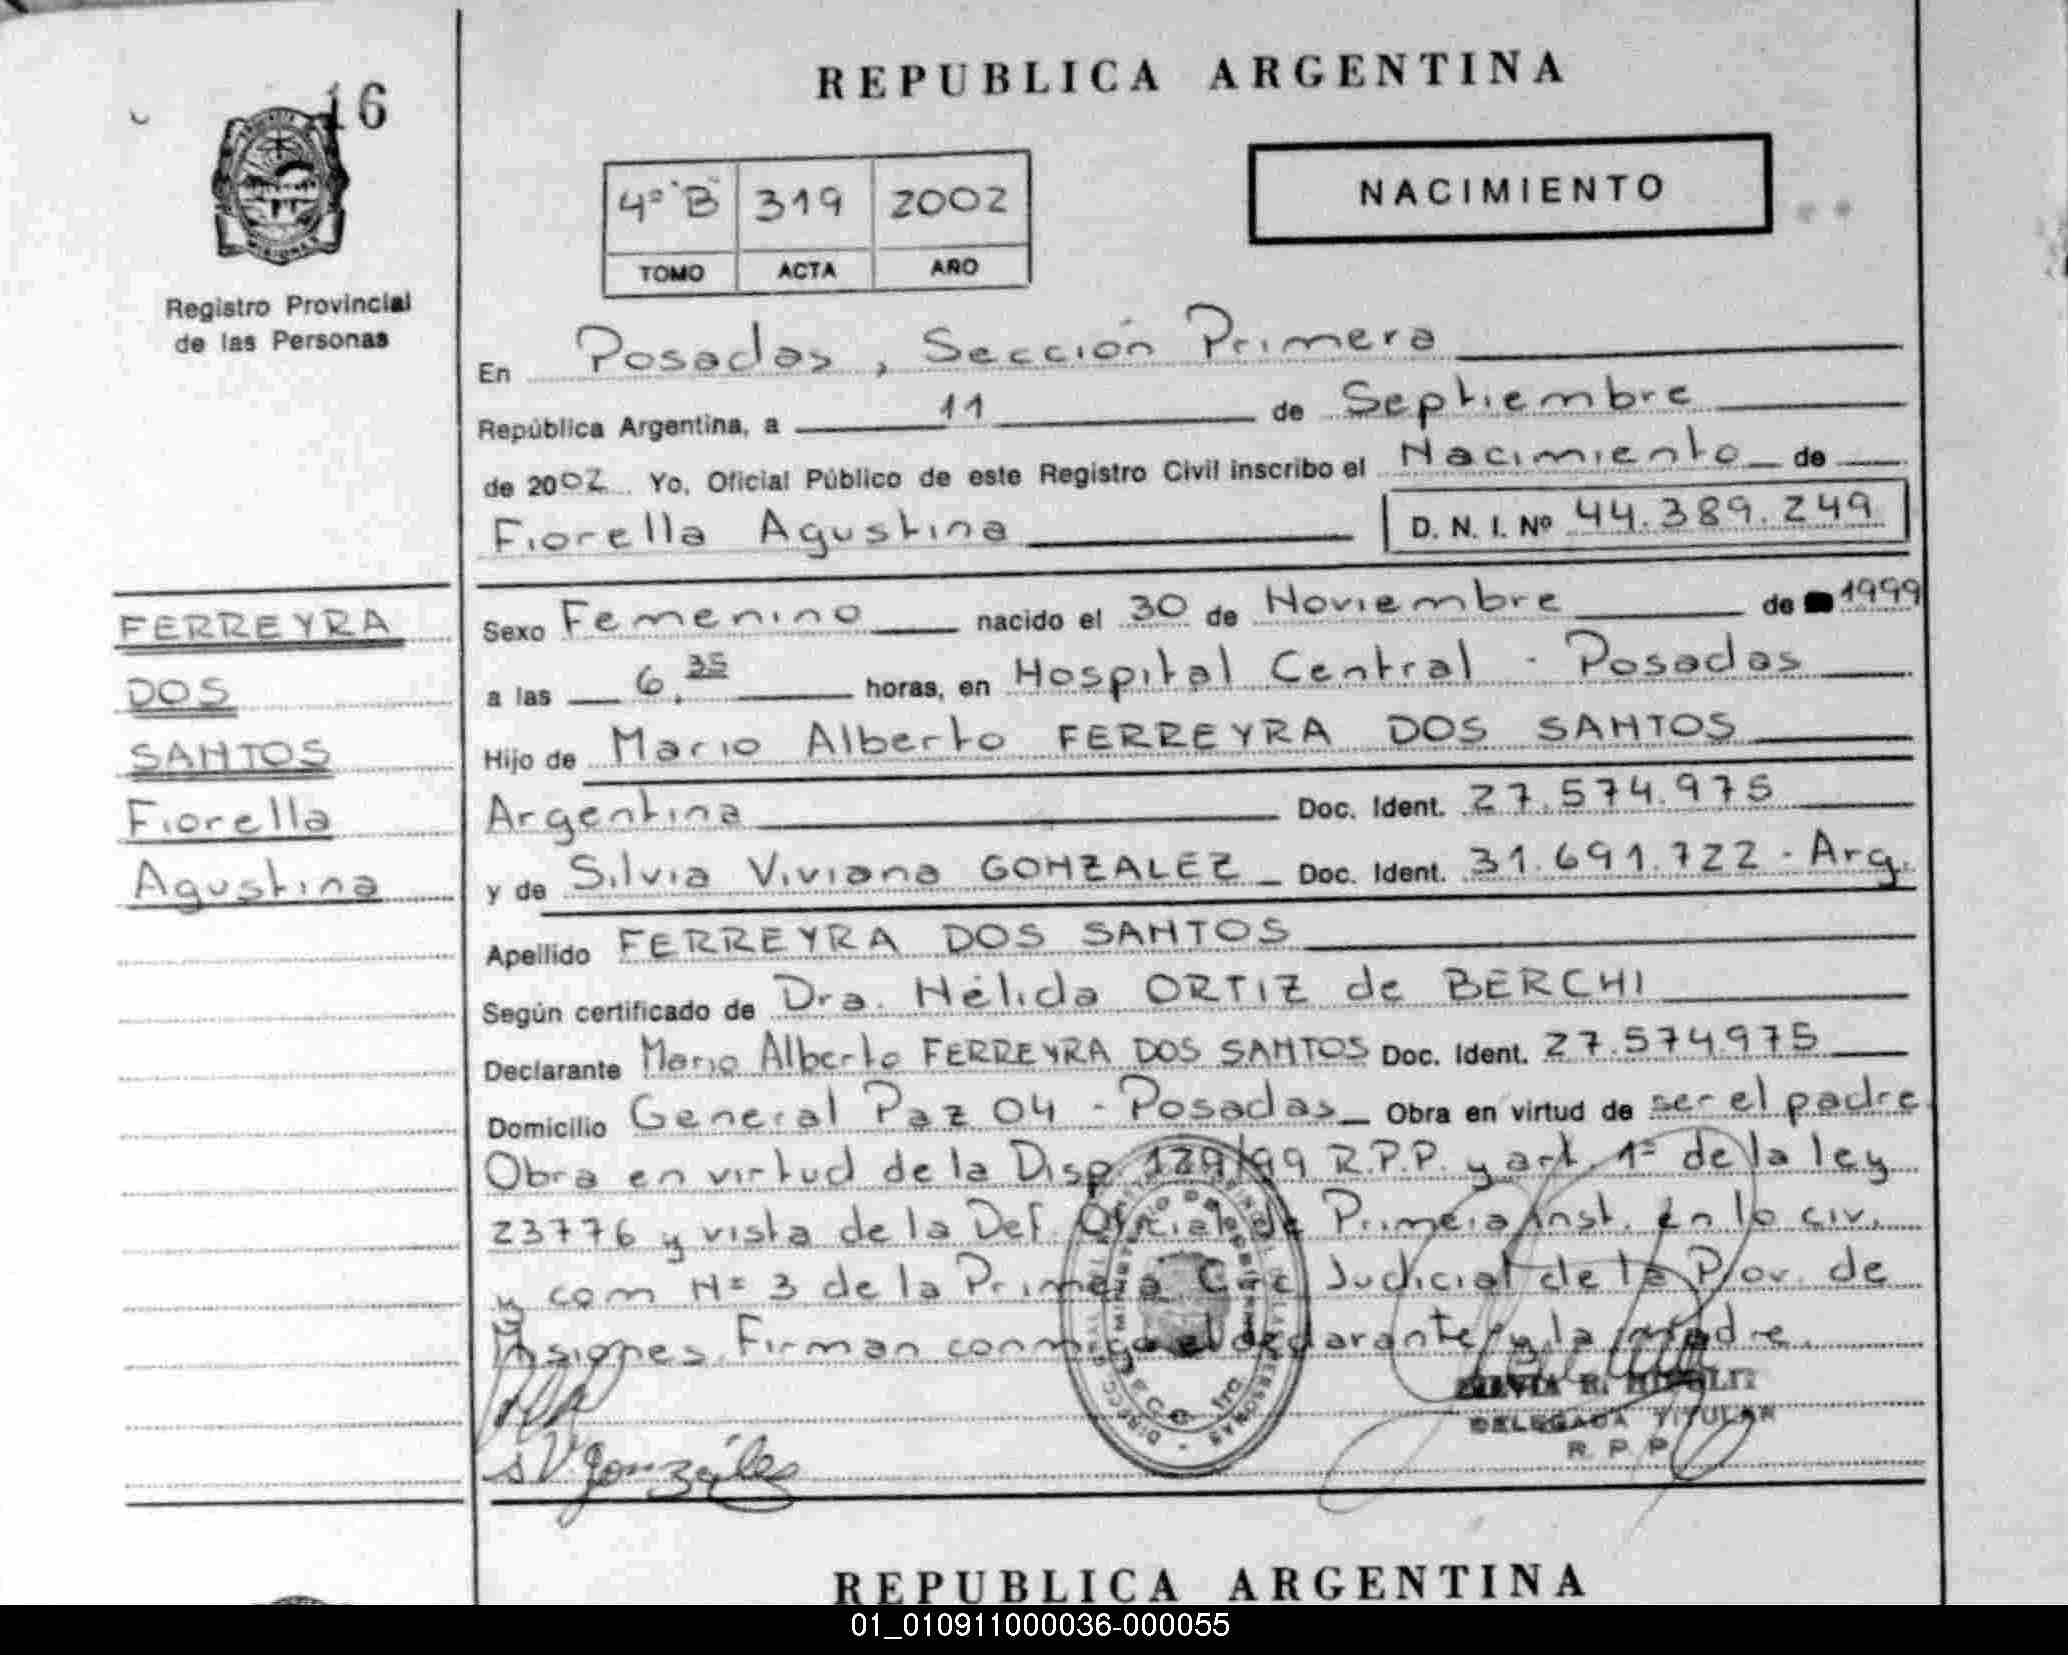 16
Registro Provincial
de las Personas
REPUBLICA ARGENTINA
4º "B" 319 2002
TOMO ACTA AÑO
NACIMIENTO
En Posadas, Sección Primera
República Argentina, a 11 de Septiembre
de 2002 Yo, Oficial Público de este Registro Civil inscribo el Nacimiento de
Fiorella Agustina D. N. I. Nº 44.389.249
FERREYRA
DOS
SANTOS
Fiorella
Agustina
Sexo Femenino nacido el 30 de Noviembre de 1999
a las 6.35 horas, en Hospital Central - Posadas
Hijo de Mario Alberto FERREYRA DOS SANTOS
Argentina Doc. Ident. 27.574.975
y de Silvia Viviana GONZALEZ Doc. Ident. 31.691.722 - Arg.
Apellido FERREYRA DOS SANTOS
Según certificado de Dra. Hélida ORTIZ de BERCHI
Declarante Mario Alberto FERREYRA DOS SANTOS Doc. Ident. 27.574975
Domicilio General Paz 04 - Posadas Obra en virtud de ser el padre
Obra en virtud de la Disp. 129/99 R.P.P. y art. 1º de la ley
23776 y vista de la Def. Oficial de Primera Inst. en lo civ.
y com Nº 3 de la Primera Circ Judicial de la Prov. de
Misiones. Firman conmigo el declarante y la madre.
S V González
DELEGADA TITULAR
R. P. P.
REPUBLICA ARGENTINA
01_010911000036-000055